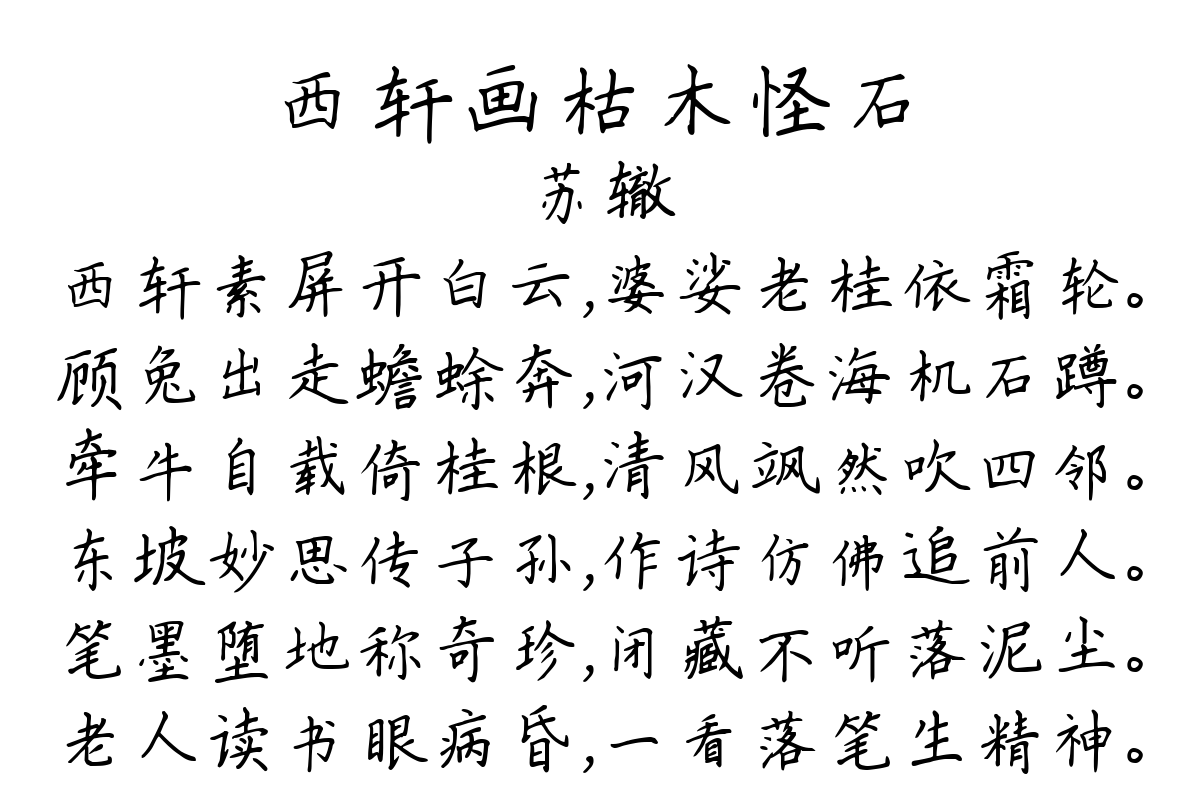 西轩画枯木怪石
苏辙
西轩素屏开白云,婆娑老桂依霜轮。
顾兔出走蟾蜍奔,河汉卷海机石蹲。
牵牛自载倚桂根,清风飒然吹四邻。
东坡妙思传子孙,作诗仿佛追前人。
笔墨堕地称奇珍,闭藏不听落泥尘。
老人读书眼病昏,一看落笔生精神。